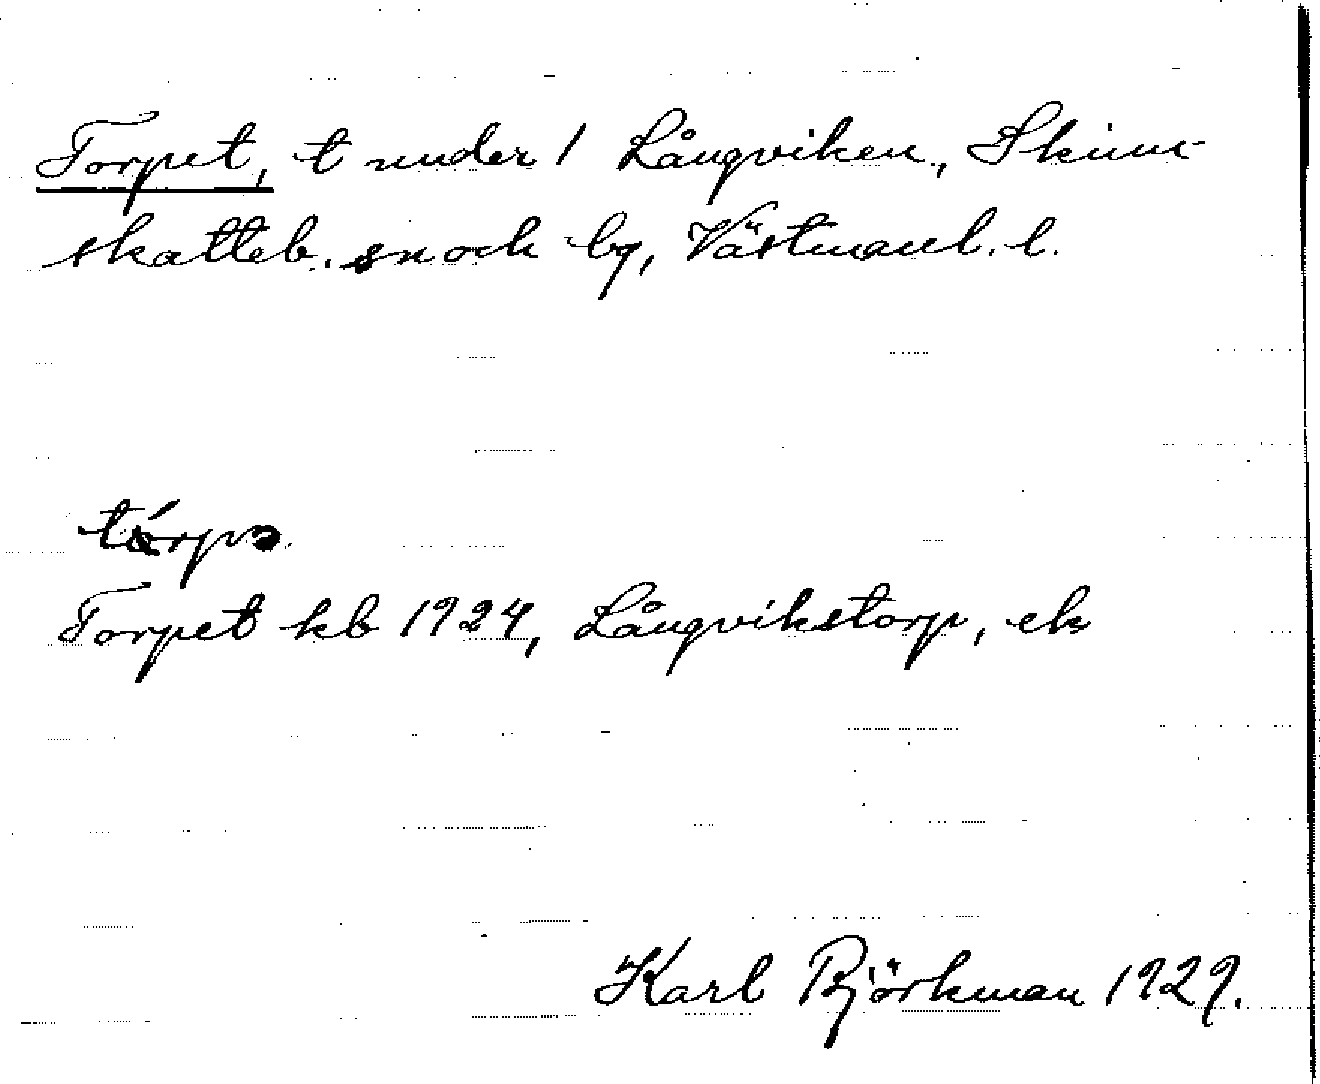 Torpet, t under 1 Långviken, Skinn-
skatteb. sn och by, Västmanl. l.
tórpə
Torpet kb 1924, Långvikstorp, ek
Karl Björkman 1929.